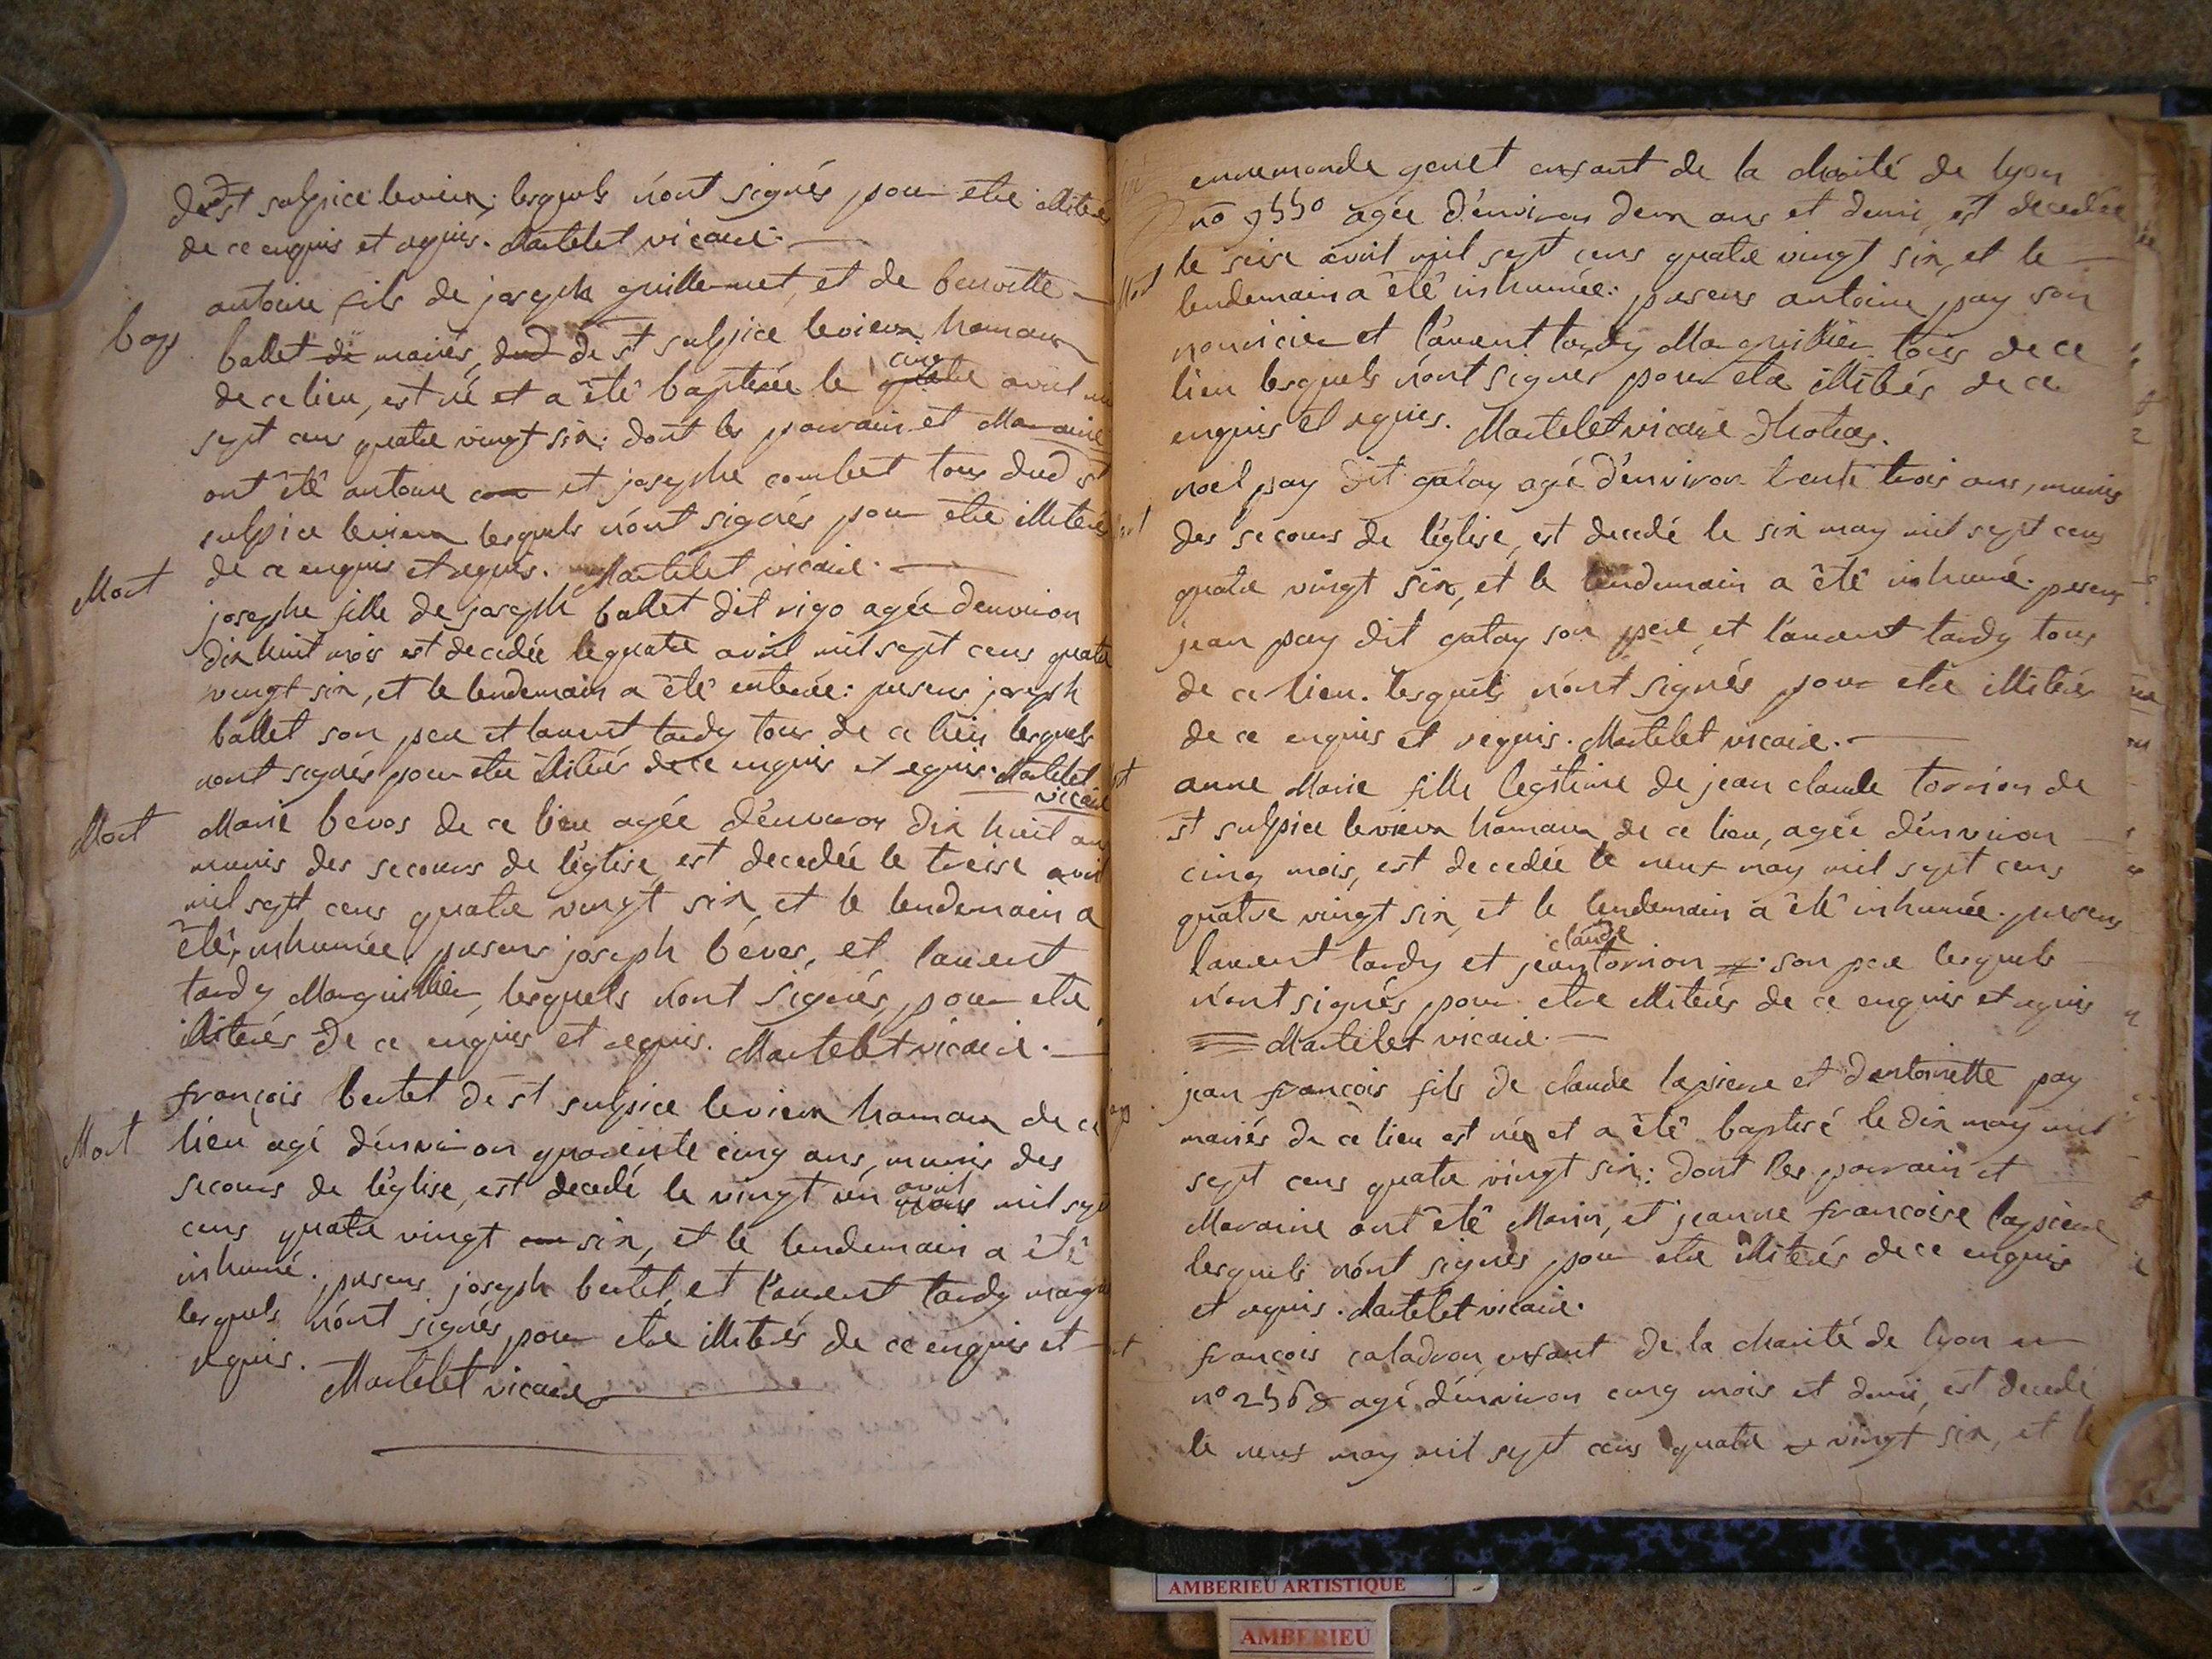 dud st sulpice levieux; lesquels n'ont signés pour etre illiterés
de ce enquis et requis. Martelet vicaire.
antoine fils de joseph guillermet, et de benoitte
bap
ballet de mariés, dud de st sulpice levieux hamaux
de ce lieu, est né et a êté baptisée le quatre cinq avril mil
sept cens quatre vingt six: dont les parrain et Maraine
ont êté antoine et josephe combet tous dud st
sulpice levieux lesquels n'ont signés pour etre illiterés
de ce enquis et requis. Martelet vicaire.
Mort
josephe fille de joseph ballet dit rigo agée d'environ
dix huit mois est decedée le quatre avril mil sept cens quatre
vingt six, et le lendemain a êté enterée: presens joseph
ballet son pere et laurent tardy tous de ce lieu lesquels
nont signés pour etre illiterés de ce enquis et requis. Martelet
vicaire
Mort
Marie bevos de ce lieu agée d'environ dix huit ans
munis des secours de l'église, est decedée le treise avril
mil sept cens quatre vingt six, et le lendemain a
êté inhumée. presens joseph béves, et laurent
tardy Marguillier, lesquels n'ont signés, pour etre
illiterés de ce enquis et requis. Martelet vicaire.
françois bertet de st sulpice levieux hamaux de ce
Mort
lieu agé d'environ quarente cinq ans, munis des
secours de l'église, est decedé le vingt un mars avril mil sept
cens quatre vingt six, et le lendemain a êté
inhumé. presens joseph bertet et l'aurent tardy marguil
lesquels n'ont signés pour etre illiterés de ce enquis et
requis. Martelet vicaire
ennemonde genet enfant de la charité de lyon
no 9550 agée d'environ deux ans et demi, est decedée
Mort
le seise avril mil sept cens quatre vingt six, et le
lendemain a êté inhumée: presens antoine pay son
nouricier et l'aurent tardy Marguillier tous de ce
lien lesquels n'ont signés pour etre illiterés de ce
enquis et requis. Martelet vicaire
noel pay dit galay agé d'environ trente trois ans, munis
des secours de l'église, est decedé le six may mil sept cens
quatre vingt six, et le lendemain a êté inhumé. presens
jean pay dit galay son pere, et l'aurent tardy tous
de ce lieu. lesquels n'ont signés pour etre illiterés
de ce enquis et requis. Martelet vicaire.
anne Marie fille legitime de jean claude torrion de
st sulpice levieux hamaux de ce lieu, agée d'environ
cinq mois, est decedée le neuf may mil sept cens
quatre vingt six, et le lendemain a êté inhumée. presens
laurent tardy et jean claude torrion son pere lesquels
n'ont signés pour etre illiterés de ce enquis et requis
Martelet vicaire.
jean françois fils de claude lapierre et d'antoinette pay
mariés de ce lieu est né et a êté baptisé le dix may mil
sept cens quatre vingt six: dont les parrain et
Maraine ont êté Marin, et jeanne françoise lapierre
lesquels n'ont signés pour etre illiterés de ce enquis
et requis. Martelet vicaire.
françois caladron enfant de la charité de lyon
no 2568 agé d'environ cinq mois et demi, est decedé
le neuf may mil sept cens quatre vingt six, et le
AMBERIEU ARTISTIQUE
AMBERIEU